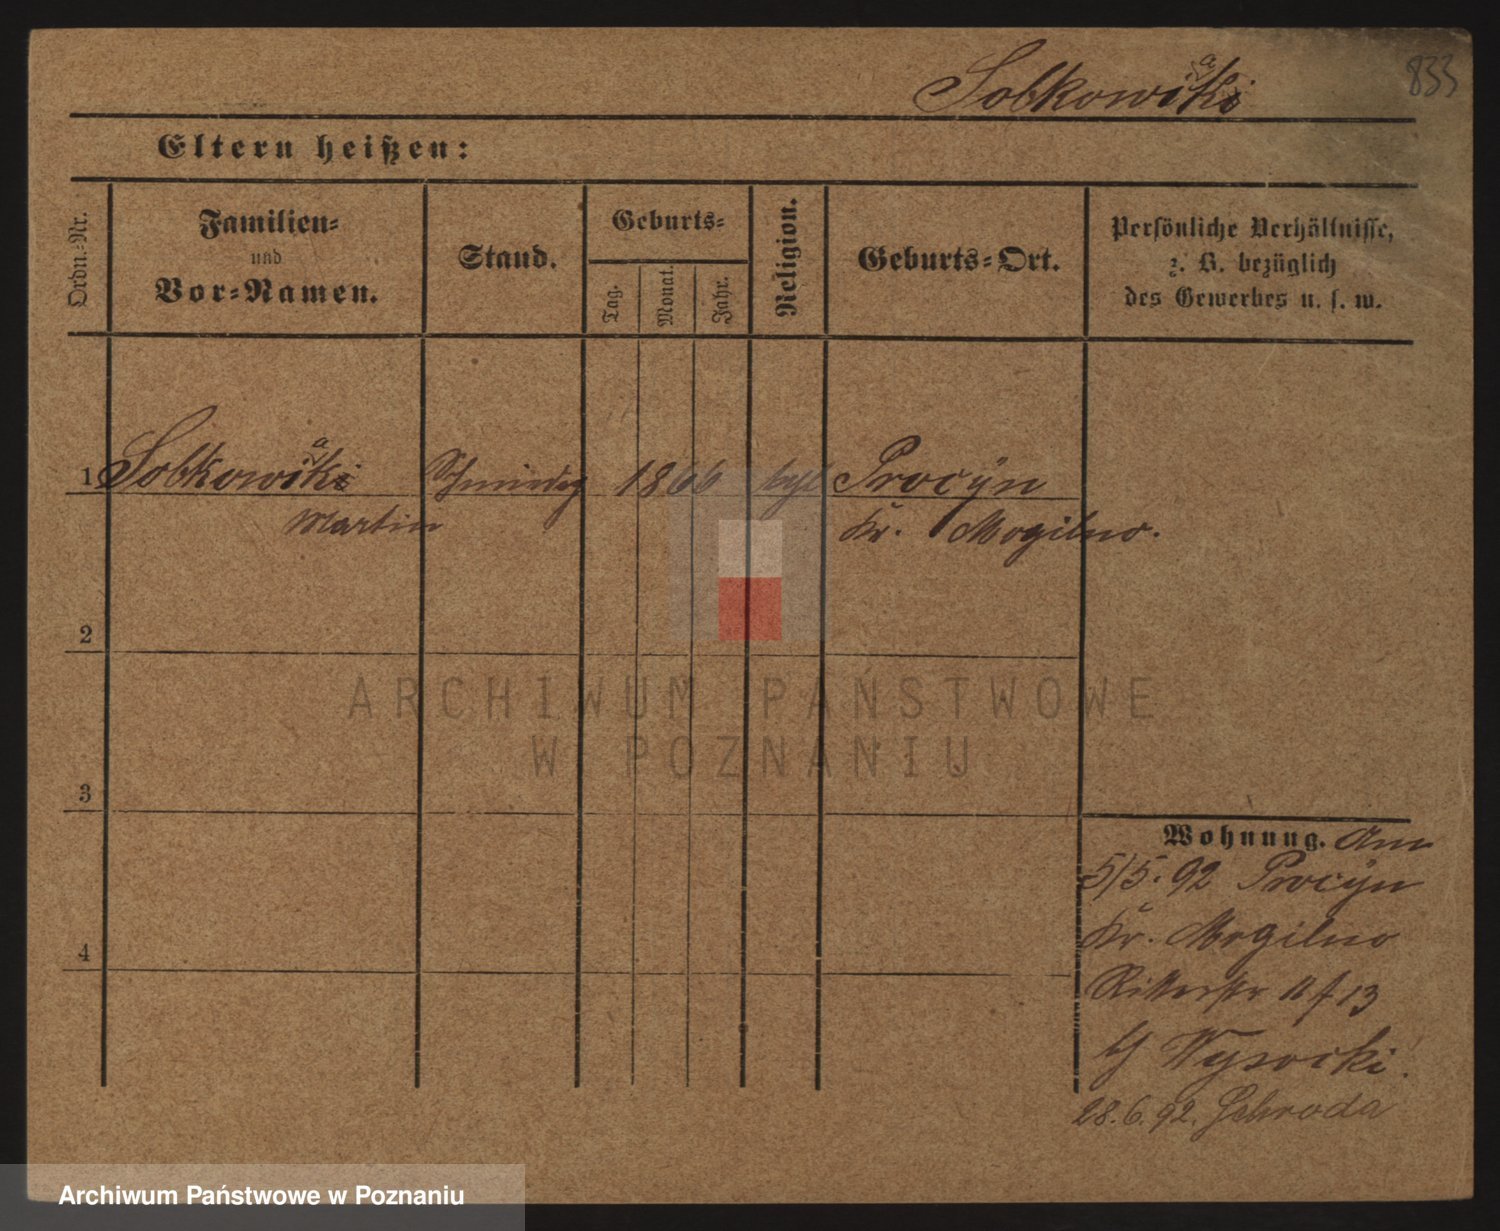 833
Sobkowiak
Eltern heißen:
Ordn.-Nr.
Familien-
und
Vor-Namen.
Stand.
Geburts-
Tag.
Monat.
Jahr.
Religion.
Geburts-Ort.
Persönliche Verhältnisse,
z. B. bezüglich
des Gewerbes u. s. w.
1 Sobkowiak 1866 Procyn
Martin Kr. Mogilno.
2
3
4
Wohnung. Am
5/5. 92 Procyn
Kr. Mogilno
Ritterstr 13
b/ Wysocki.
28.6.92. Schroda
ARCHIWUM PAŃSTWOWE
W POZNANIU
Archiwum Państwowe w Poznaniu